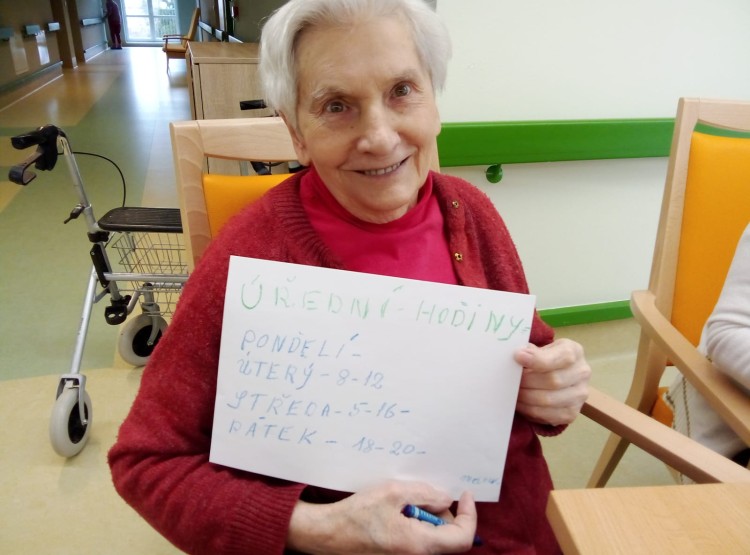 ÚŘEDNÍ-HOĎINY=
PONĎELÍ-
ÚTERÝ-8-12
STŘEDA-5-16-
PÁTEK - 18-20-